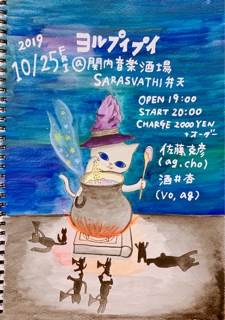 2019
ヨルプイプイ
10/25 Fri @関内音楽酒場
SARASVATHI弁天
OPEN 19:00
START 20:00
CHARGE 2000YEN
+オーダー
佐藤克彦
(ag.cho)
酒井杏
(vo, ag)